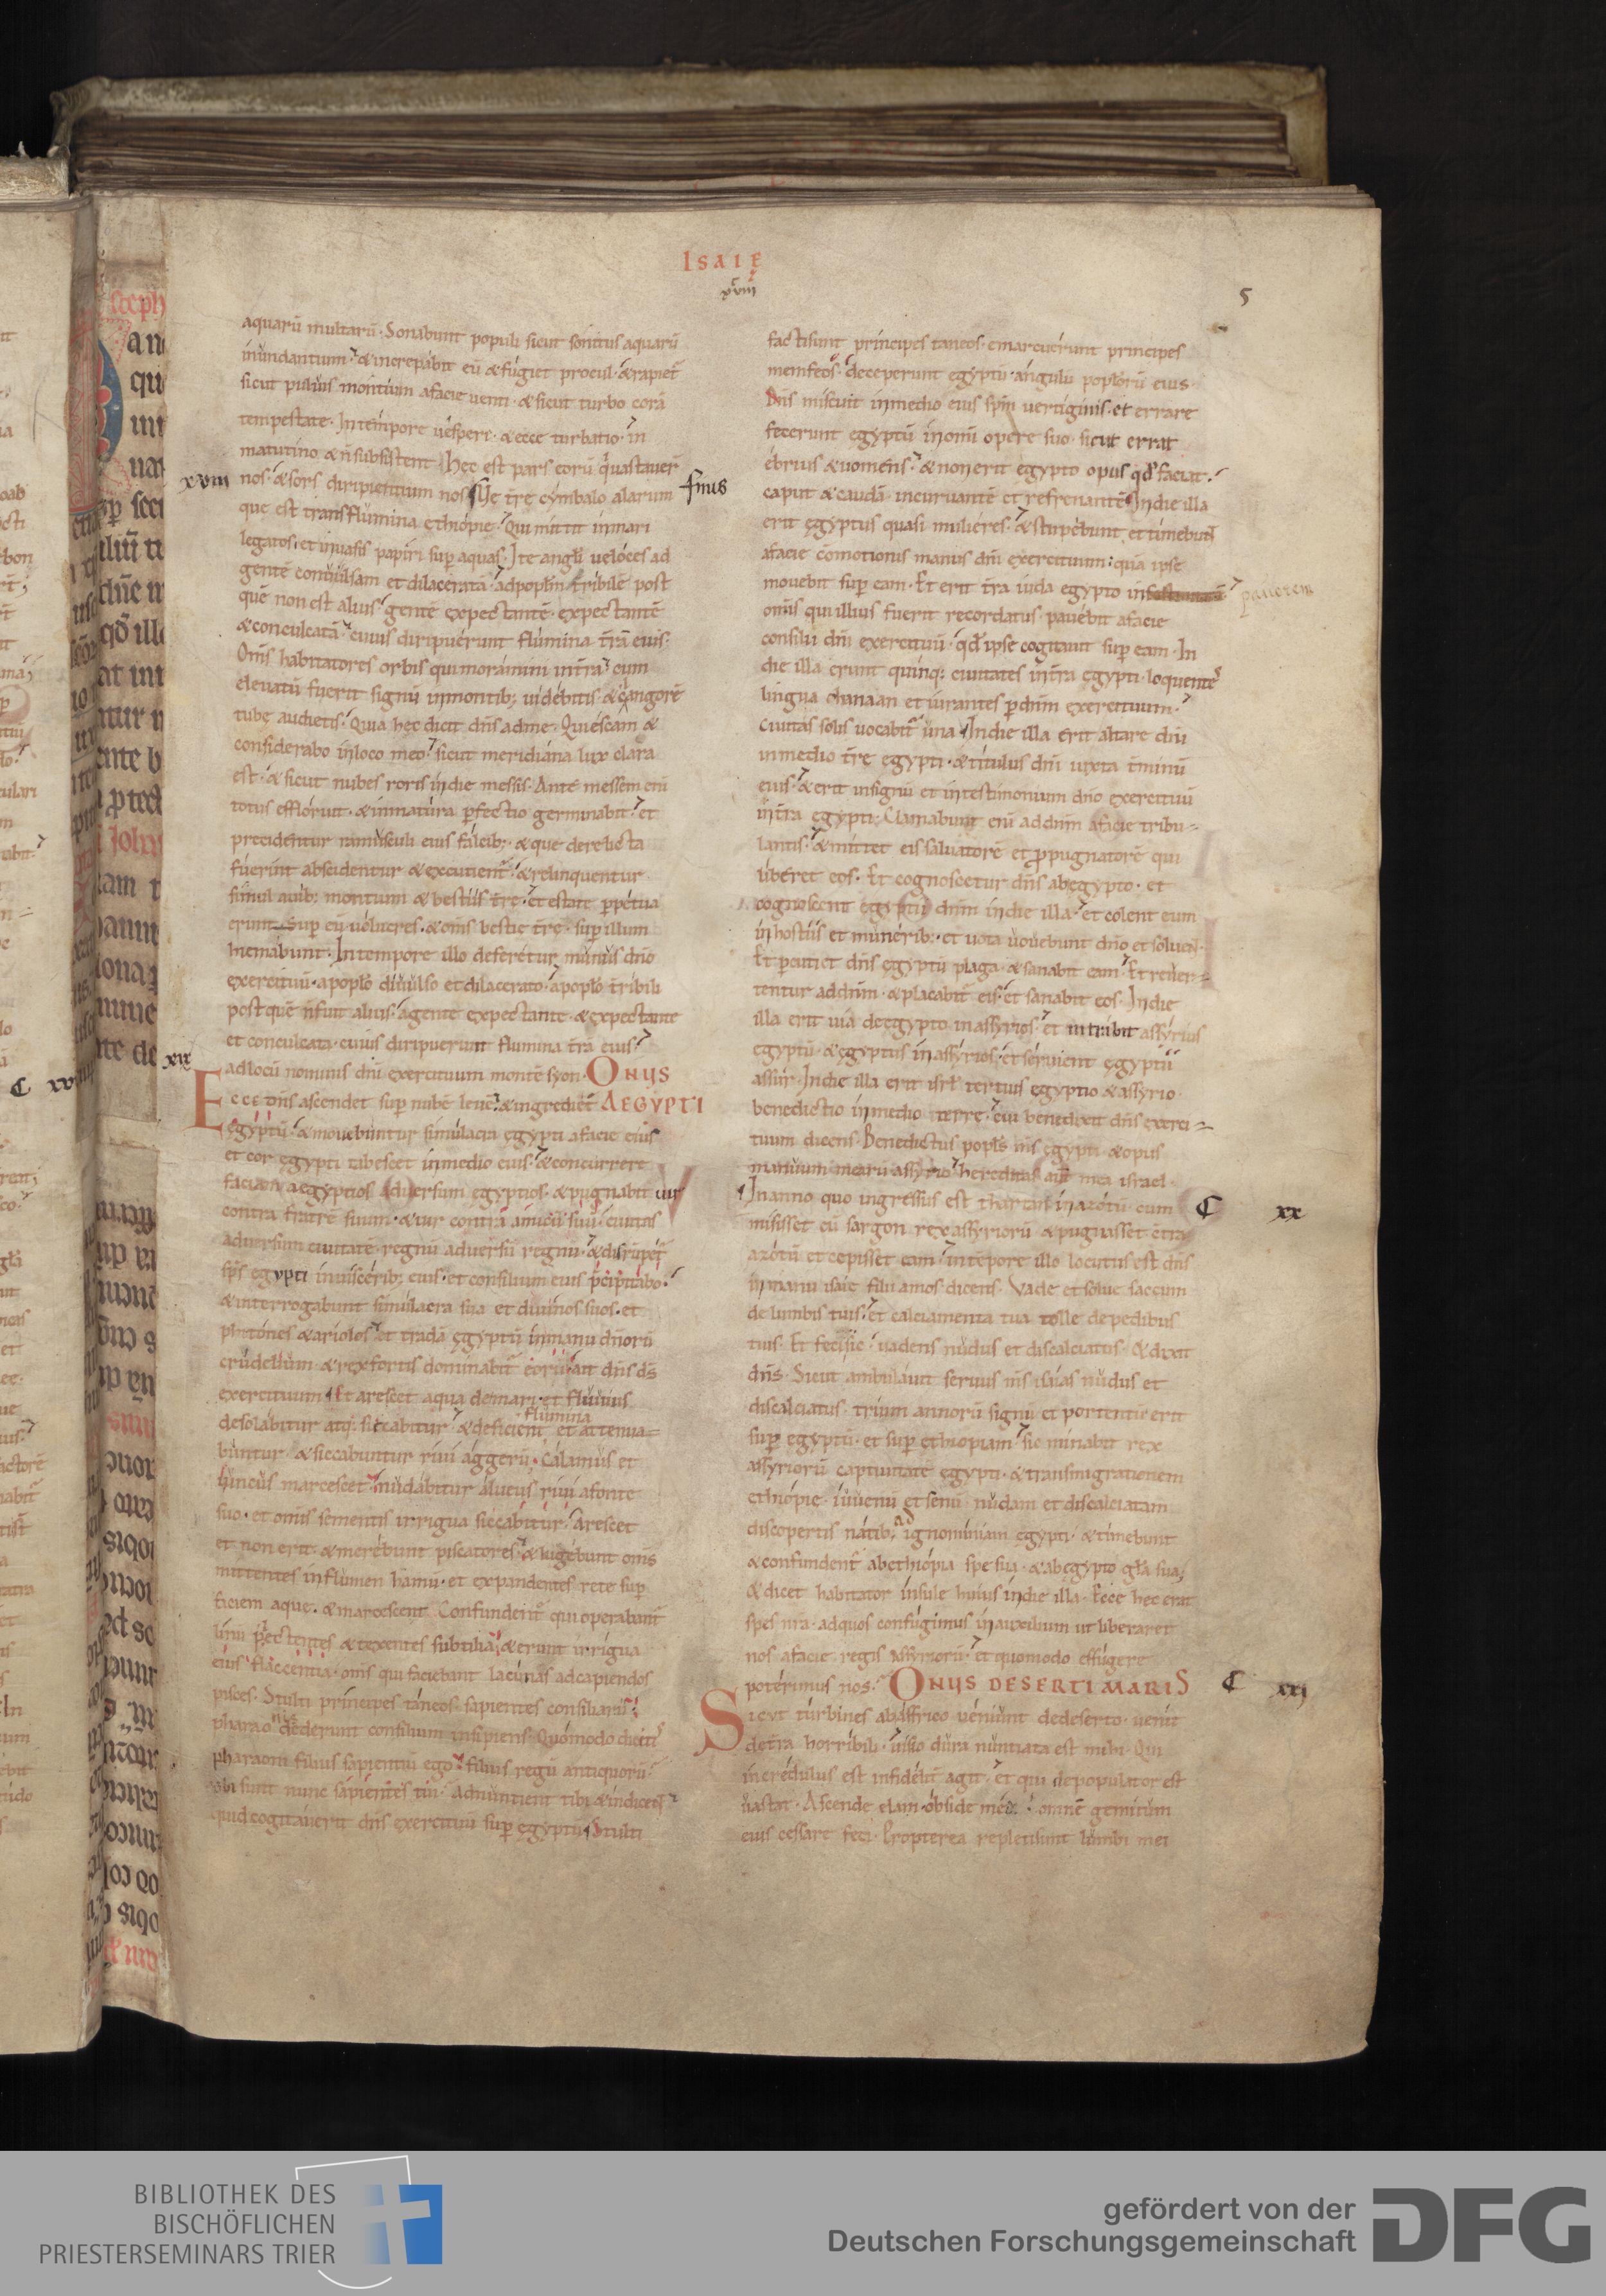 ISAIĘ
xviii
5
aquarū multarū. Sonabunt populi sicut sonitus aquarū
inundantium. & increpabit eū & fugiet procul. & rapiet̄
sicut puluis montium afacie uenti. & sicut turbo corā
tempestate. In tempore uespere. & ecce turbatio. in
matutino & ñ subsistent. Hęc est pars eorū q̇ uastauer̄
xviii nos. & sors diripientium nos. Vę tr̄e cymbalo alarum
que est trans flumina ęthiopię. Qui mittit in mari
legatos. et in uasis papiri sup̄ aquas. Ite angl̄i ueloces ad
gentē conuulsam et dilaceratā. ad popl̄m tr̄ibilē post
quē non est alius. gentē expectantē. expectantē
& conculcatā. cuius diripuerunt flumina tr̄ā eius.
Om̄s habitatores orbis qui moramini in tr̄a. cum
eleuatū fuerit signū in montib; uidebitis. & clangorē
tubę audietis. Quia hęc dicit dn̄s ad me. Quiescam &
considerabo in loco meo. sicut meridiana lux clara
est. & sicut nubes roris in die messis. Ante messem eni
totus effloruit. & inmatura p̄fectio germinabit. et
precidentur ramusculi eius falcib;. & que derelicta
fuerint abscidentur & excutient̄. & relinquentur
simul auib; montium & bestiis tr̄ę. et estate p̄petua
erunt sup̄ eū uolucres. & om̄s bestię tr̄ę. sup̄ illum
hiemabunt. In tempore illo deferetur munus dn̄o
exercituū. a popl̄o diuulso et dilacerato. a popl̄o tr̄ibili
post quē ñ fuit alius. a gente expectante. & expectante
et conculcata. cuius diripuerunt flumina tr̄ā eius.
xix ad locū nominis dn̄i exercituum montē syon. ONUS
Ecce dn̄s ascendet sup̄ nubē leuē. & ingrediet̄ AEGYPTI
ęgyptū. & mouebuntur simulacra ęgypti afacie eius
et cor ęgypti tabescet in medio eius. & concurrere
faciam aegyptios aduersum ęgyptios. & pugnabit uir
contra fratrē suum. & uir contra amicū suū. ciuitas
aduersum ciuitatē. regnū aduersū regnū. & disrūpet̄
sp̄s egypti in uiscerib; eius. et consilium eius p̄cipitabo.
& interrogabunt simulacra sua et diuinos suos. et
phitones & ariolos. et tradā ęgyptū in manu dn̄orū
crudelium. & rex fortis dominabit̄ eorū ait dn̄s ds̄
exercituum. Et arescet aqua de mari. et fluuius
desolabitur atq; siccabitur. & deficient flumina et attenua=
buntur. & siccabuntur riui aggerū. Calamus et
iuncus marcescet. nudabitur alueus riui afonte
suo. et omis sementis irrigua siccabitur. Arescet
et non erit. & merebunt piscatores. & lugebunt om̄s
mittentes in flumen hamū. et expandentes rete sup̄
faciem aque. & marcescent. Confundent̄ qui operabant̄
linū pectentes & texentes subtilia. & erunt irrigua
eius flaccentia. om̄s qui faciebant lacunas ad capiendos
pisces. Stulti principes taneos. sapientes consiliarii
pharao dederunt consilium insipiens. Quomodo dicitis
pharaoni filius sapientiū ego. filius regū antiquorū.
Vbi sunt nunc sapientes tui. Adnuntient tibi & indicent
quid cogitauerit dn̄s exercituū sup̄ ęgyptū. Stulti
facti sunt principes taneos. emarcuerunt principes
memfeos. deceperunt egyptū. angulū popl̄orū eius.
Dn̄s miscuit in medio eius sp̄m uertiginis. et errare
fecerunt egyptū in omi opere suo. sicut errat
ebrius & uomens. & non erit egypto opus qd̄ faciat.
caput & caudā. incuruantē et refrenantē. In die illa
erit ęgyptus quasi mulieres. & stupebunt et timebunt
afacie cōmotionis manus dn̄i exercituum. quā ipse
mouebit sup̄ eam. Et erit tr̄a iuda egypto in pauorem
om̄is qui illius fuerit recordatus. pauebit afacie
consilii dn̄i exercituū. qd̄ ipse cogitauit sup̄ eam. In
die illa erunt quinq; ciuitates in tr̄a ęgypti. loquentes
lingua chanaan et iurantes p̄ dn̄m exercituum.
Ciuitas solis uocabit̄ una. In die illa erit altare dn̄i
in medio tr̄ę ęgypti. & titulus dn̄i iuxta t̄minū
eius. & erit in signū et in testimonium dn̄o exercituū
in tr̄a ęgypti. Clamabunt eni ad dn̄m afacie tribu=
lantis. & mittet eis saluatorē et p̄pugnatorē qui
liberet eos. Et cognoscetur dn̄s ab egypto. et
cognoscent egyptii dn̄m in die illa. et colent eum
in hostiis et munerib;. et uota uouebunt dn̄o et soluent.
Et percutiet dn̄s ęgyptū plaga. & sanabit eam. Et reuer=
tentur ad dn̄m. & placabit̄ eis. et sanabit eos. In die
illa erit uia de egypto in assyrios. et intrabit assyrius
egyptū. & ęgyptus in assyrios. et seruient ęgyptii
assur. In die illa erit isrl̄ tertius egyptio & assyrio.
benedictio in medio terre. cui benedixit dn̄s exerci=
tuum dicens. Benedictus popl̄s ms̄ ęgypti. & opus
manuum mearū assyrio. hereditas aut̄ mea israel.
In anno quo ingressus est tharthan in azotū. cum C xx
misisset eū sargon rex assyriorū & pugnasset ctra
azotū et cepisset eam. in tēpore illo locutus est dn̄s
in manu isaie filii amos dicens. Vade et solue saccum
de lumbis tuis. et calciamenta tua tolle de pedibus
tuis. Et fecit sic. uadens nudus et discalciatus. & dixit
dn̄s. Sicut ambulauit seruus ms̄ isaias nudus et
discalciatus. trium annorū signū et portentū erit
sup̄ egyptū. et sup̄ ęthiopiam. sic minabit rex
assyriorū captiuitatē ęgypti. & transmigrationem
ethiopię. iuuenū et senū. nudam et discalciatam
discopertis natib; ad ignominiam ęgypti. & timebunt
& confundent̄ ab ethiopia spe sua. & ab egypto gl̄a sua.
& dicet habitator insule huius in die illa. Ecce hęc erat
spes nr̄a. ad quos confugimus in auxilium ut liberaret
nos afacie regis assyriorū. et quomodo effugere
poterimus nos. ONUS DESERTI MARIS C xxi
Sicvt turbines ab affrico ueniunt de deserto. uenit
de tr̄a horribili. uisio dura nuntiata est mihi. Qui
incredulus est infidelit̄ agit. et qui depopulator est
uastat. Ascende elam. obside mede. omnē gemitum
eius cessare feci. Propterea repleti sunt lumbi mei
BIBLIOTHEK DES
BISCHÖFLICHEN
PRIESTERSEMINARS TRIER
gefördert von der
Deutschen Forschungsgemeinschaft
DFG